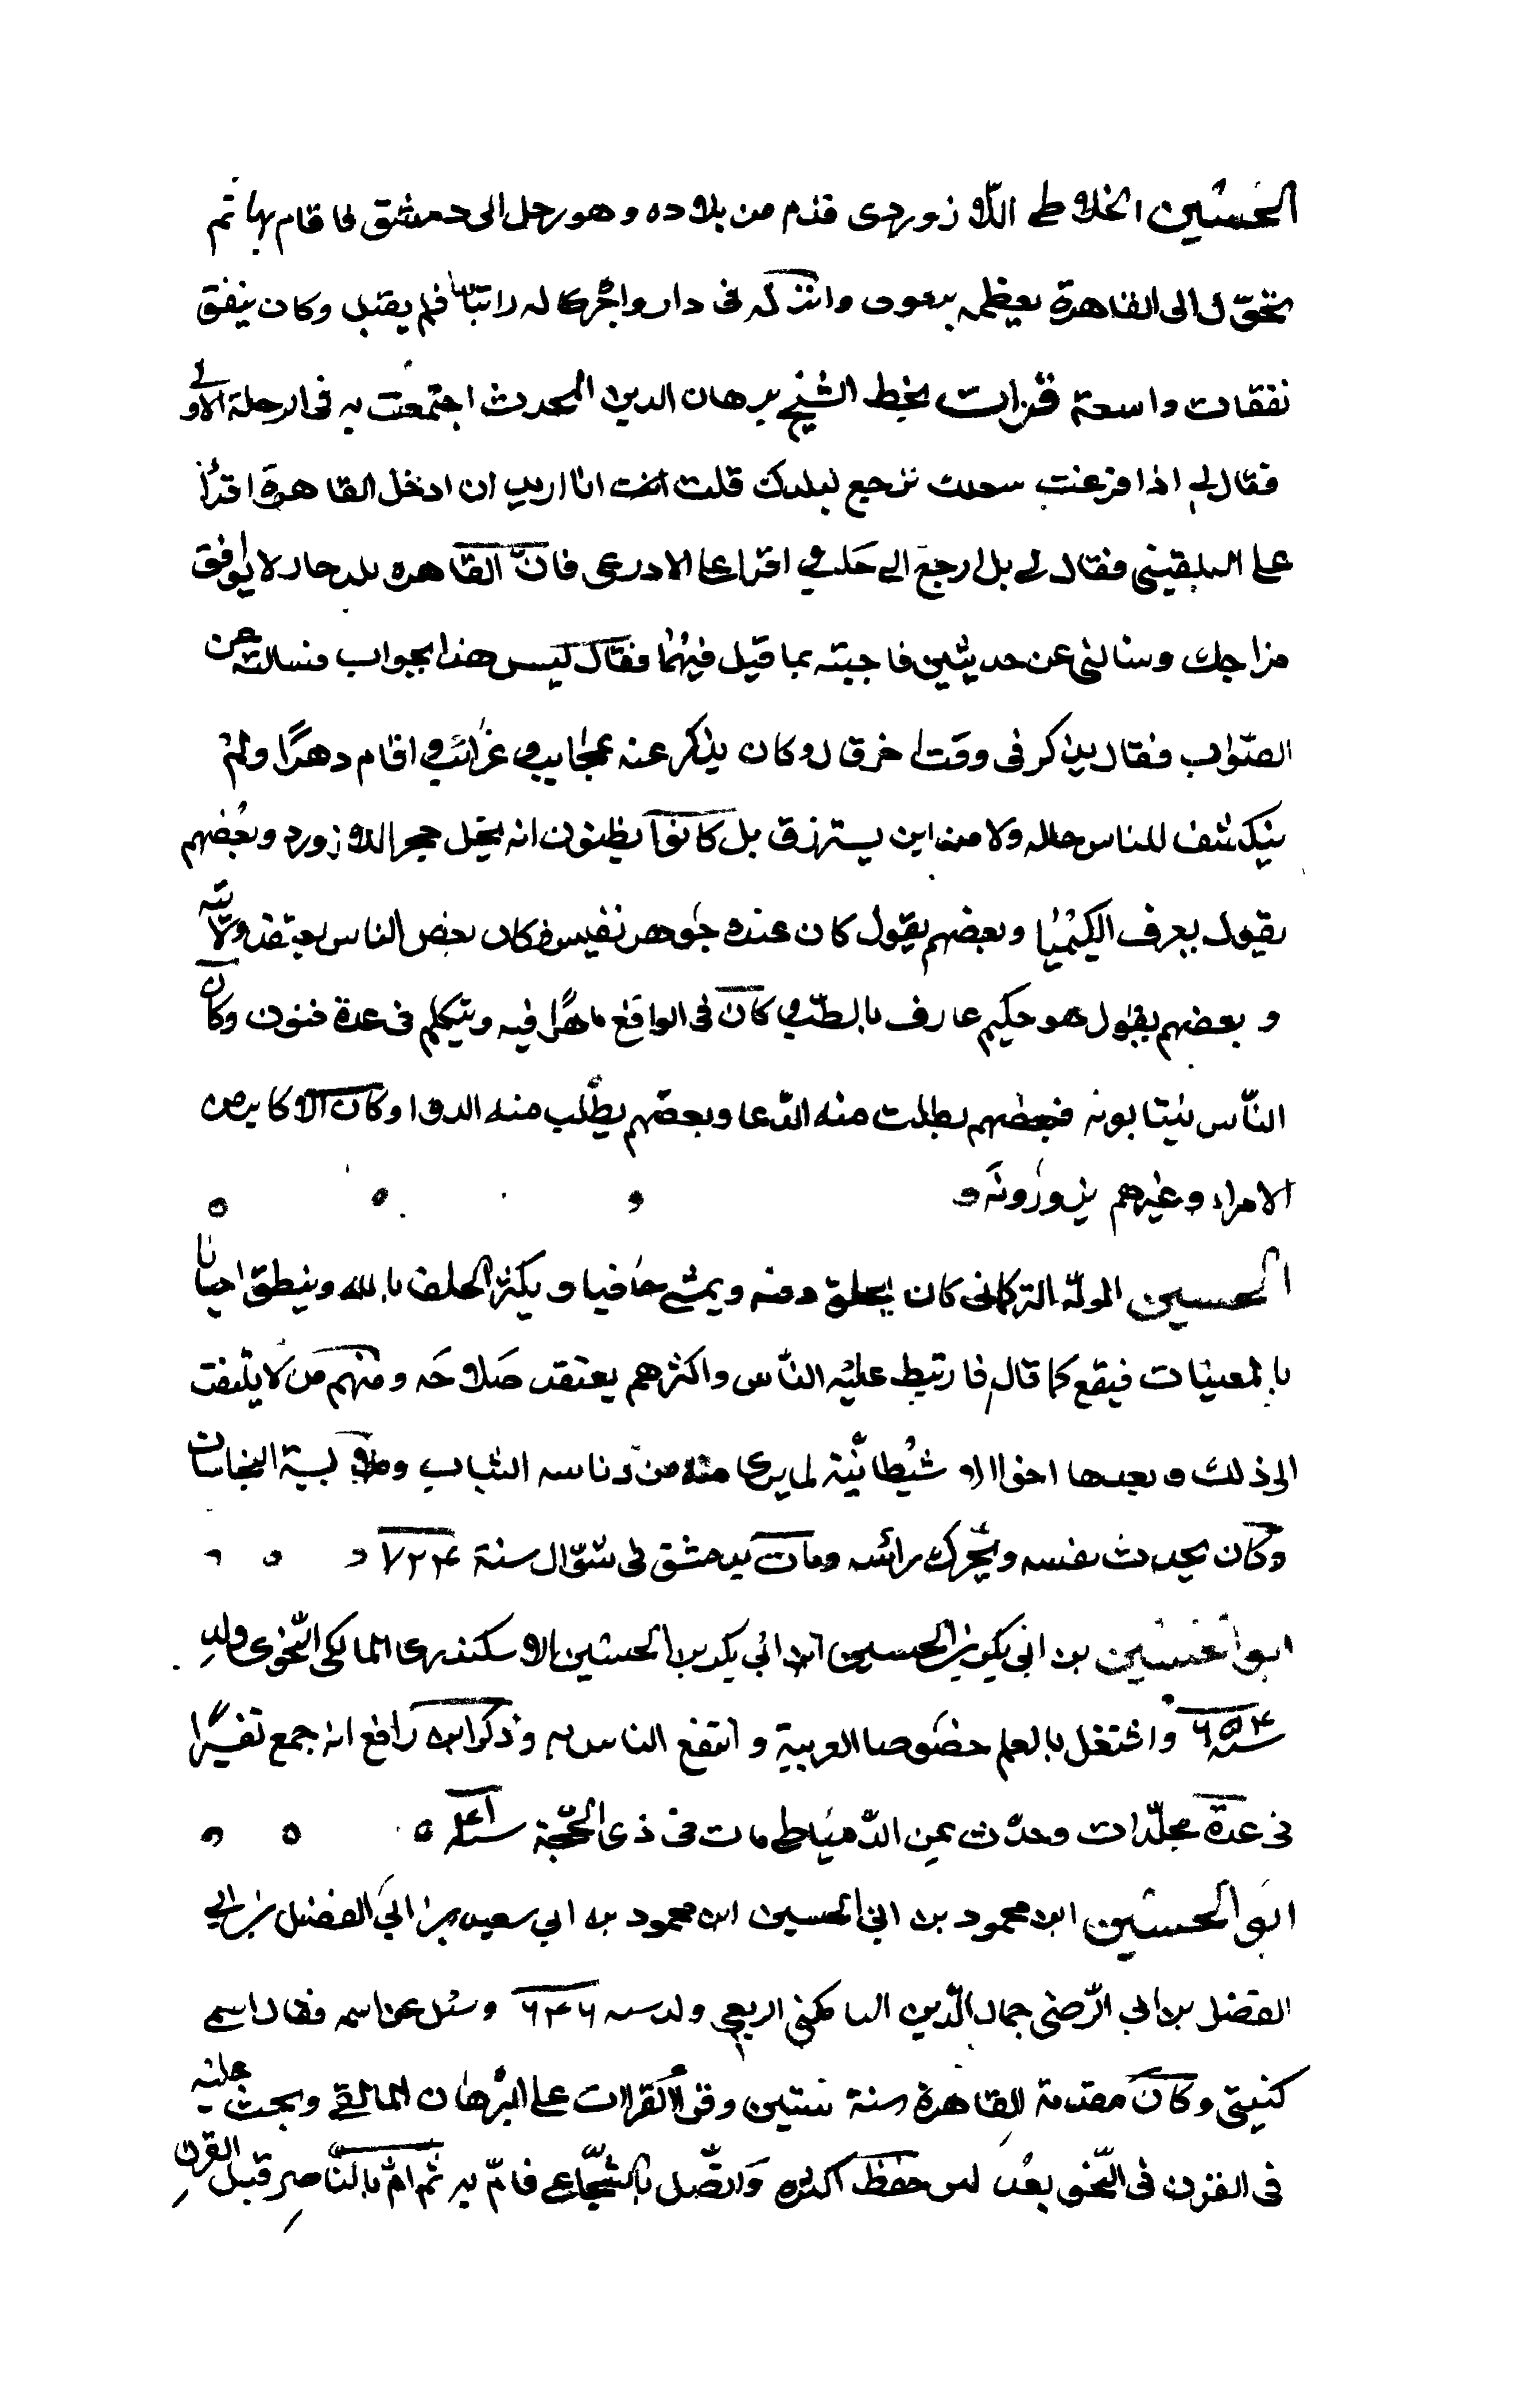 الحسين الخلاطي اللازوردى قدم من بلاده وهو رجل الى دمشق فاقام بها ثم
تحوّل الى القاهرة يعظمه برقوق وانزله فى دار واجرى له راتبا فلم يقبل وكان ينفق
نفقات واسعة قرات بخط الشيخ برهان الدين المحدث اجتمعت به فى الرحلة الاولى
فقال لى اذا فرغت ترجع لبلدك قلت انا اريد ان ادخل القاهرة اقرأ
على البلقينى فقال لى بل ارجع الى حلب اقرا على الادرعى فان القاهره بلد حار لا يوافق
مزاجك وسالنى عن حديثين فاجبته بما قيل فيهما فقال ليس هذا بجواب فسالته عن
الصّواب فقال يذكر فى وقت اخر قال وكان يذكر عنه عجايب وغرائب اقام دهرًا ولم
ينكشف للناس حاله ولا من اين يسترزق بل كانوا يظنون انه يحيل حجر اللازورد وبعضهم
يقول يعرف الكيميا وبعضهم يقول كان عنده جوهر نفيس فكان بعض الناس يعتقد ولايته
وبعضهم يقول هو حكيم عارف بالطبّ وكان فى الواقع ماهرًا فيه ويتكلم فى عدة فنون وكان
النّاس ينتابونه فبعضهم يطلب منه الدّعا وبعضهم يطلب منه الدوا وكان الاكابر من
الامراء وغيرهم يزورونه
الحسين المولّه التركمانى كان يحلق ذقنه ويمشى حافيا ويكثر الحلف بالله وينطق احيانا
بالمغيبات فيقع كما قال فارتبط عليه النّاس واكثرهم يعتقد صلاحه ومنهم من لا يلتفت
الى ذلك ويعدها احوالا شيطانيّة لما يرى منه من دناسه الثياب وملابسة النجاسات
وكان يحدث نفسه ويحرك رأسه ومات بدمشق فى شوّال سنة ٧٢۴
ابو الحسين بن ابى بكر بن الحسين ابن ابى بكر بن الحسين الاسكندرى المالكى النّحوى ولد
سنة ۶۵۴ واشتغل بالعلم خصوصا العربية وانتفع الناس به وذكر ابن رافع انه جمع تفسيرًا
فى عدّة مجلّدات وحدّث عن الدّمياطى مات فى ذى الحجّة سنة ۷۴۱
ابو الحسين ابن محمود بن ابى الحسين ابن محمود بن ابى سعيد بن ابى الفضل بن ابى
الفضل بن ابى الرّضى جمال الدّين الربعى ولد سنه ۶۴۶ وسئل عن اسمه فقال اسمى
كنيتى وكان مقدمه القاهرة سنة ستين وقرأ القراات على البرهان المالقى وبحث عليه
فى القرن فى النّحو بعد ان حفظ اكثره واتّصل بالشجّاعى فامّ به ثم امّ بالنّاصر قبل القرن